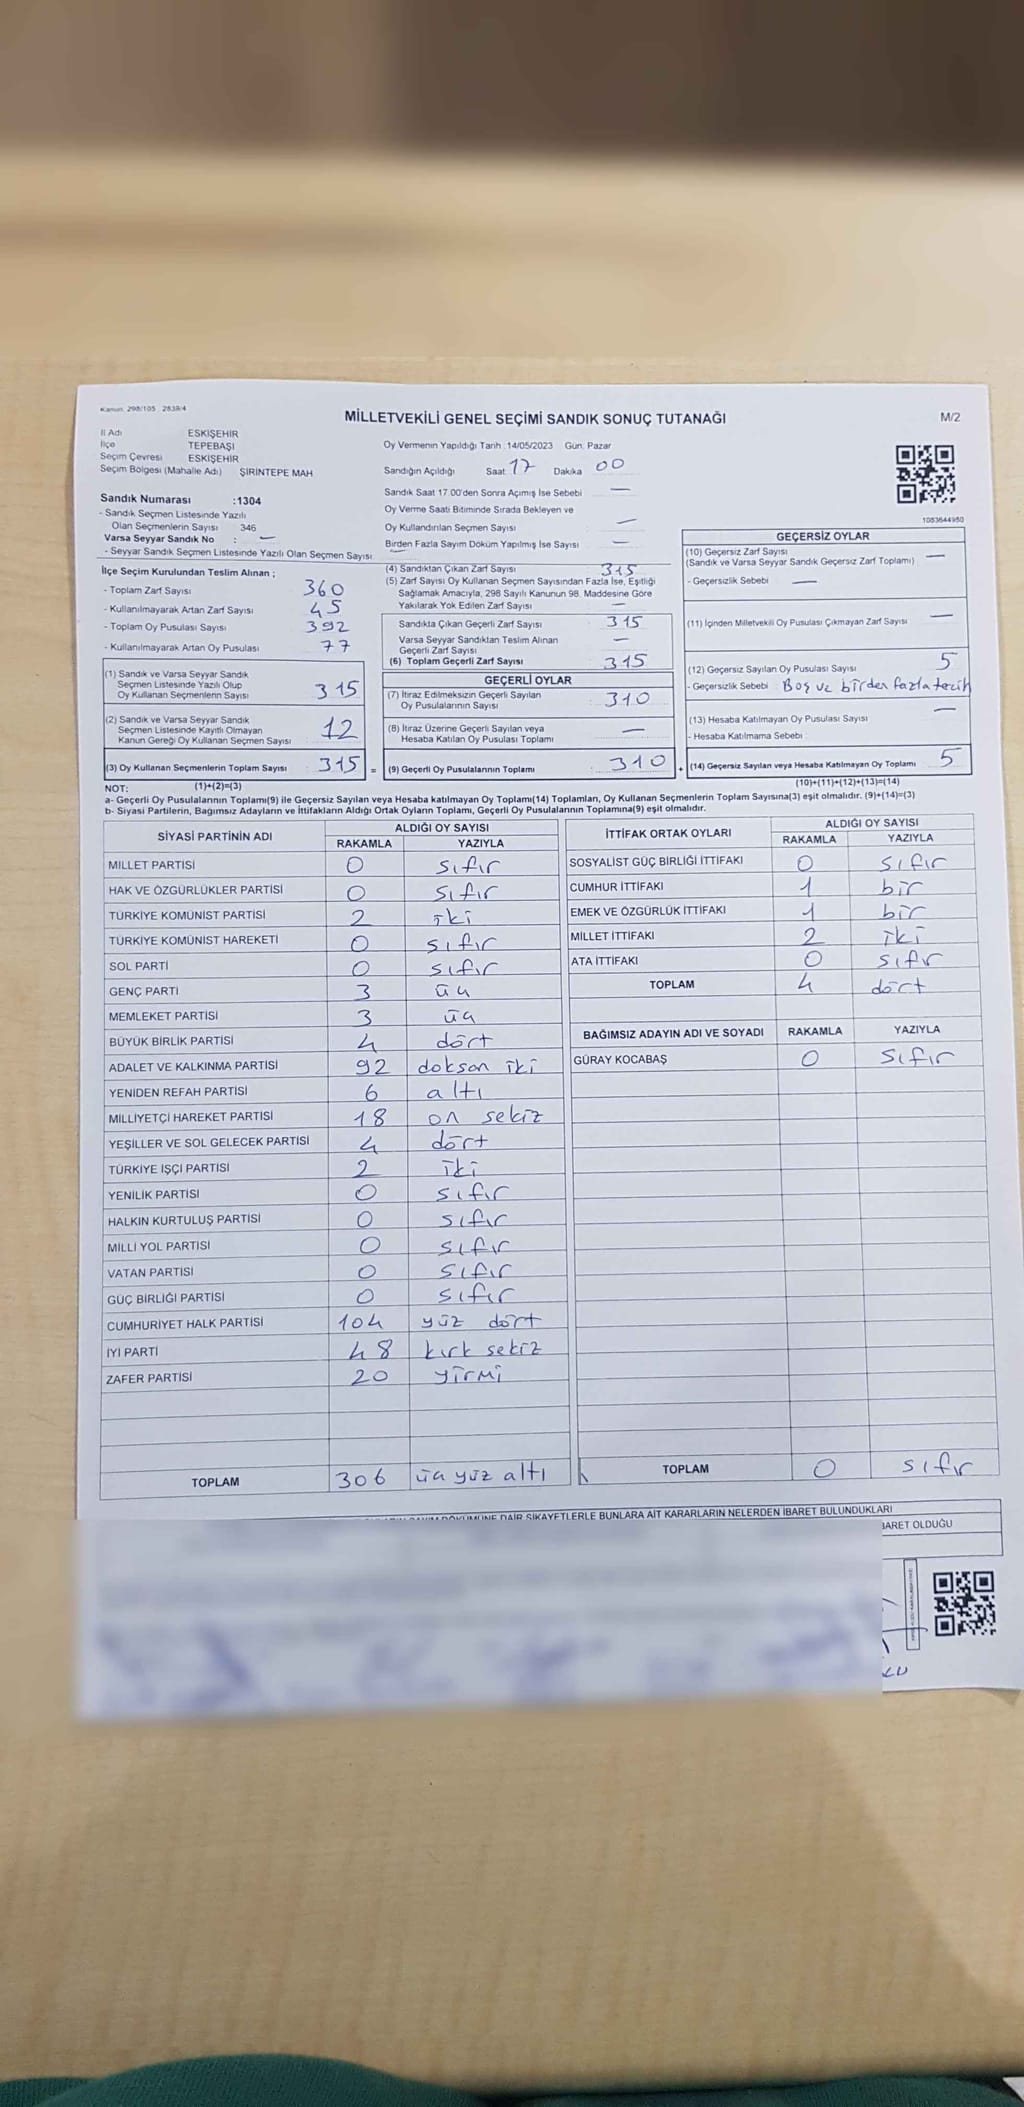 Kanun: 298/105 2839/4
MİLLETVEKİLİ GENEL SEÇİMİ SANDIK SONUÇ TUTANAĞI
M/2
İl Adı ESKİŞEHİR
İlçe TEPEBAŞI
Seçim Çevresi ESKİŞEHİR
Seçim Bölgesi (Mahalle Adı) ŞİRİNTEPE MAH
Sandık Numarası :1304
- Sandık Seçmen Listesinde Yazılı
Olan Seçmenlerin Sayısı 346
Varsa Seyyar Sandık No : —
- Seyyar Sandık Seçmen Listesinde Yazılı Olan Seçmen Sayısı
Oy Vermenin Yapıldığı Tarih :14/05/2023 Gün: Pazar
Sandığın Açıldığı Saat 17 Dakika 00
Sandık Saat 17.00'den Sonra Açımış İse Sebebi —
Oy Verme Saati Bitiminde Sırada Bekleyen ve
Oy Kullandırılan Seçmen Sayısı —
Birden Fazla Sayım Döküm Yapılmış İse Sayısı —
1053644950
İlçe Seçim Kurulundan Teslim Alınan ;
- Toplam Zarf Sayısı 360
- Kullanılmayarak Artan Zarf Sayısı 45
- Toplam Oy Pusulası Sayısı 392
- Kullanılmayarak Artan Oy Pusulası 77
(1) Sandık ve Varsa Seyyar Sandık
Seçmen Listesinde Yazılı Olup
Oy Kullanan Seçmenlerin Sayısı 315
(2) Sandık ve Varsa Seyyar Sandık
Seçmen Listesinde Kayıtlı Olmayan
Kanun Gereği Oy Kullanan Seçmen Sayısı 12
(3) Oy Kullanan Seçmenlerin Toplam Sayısı 315 =
(1)+(2)=(3)
(4) Sandıktan Çıkan Zarf Sayısı 315
(5) Zarf Sayısı Oy Kullanan Seçmen Sayısından Fazla İse, Eşitliği
Sağlamak Amacıyla, 298 Sayılı Kanunun 98. Maddesine Göre
Yakılarak Yok Edilen Zarf Sayısı —
Sandıkta Çıkan Geçerli Zarf Sayısı 315
Varsa Seyyar Sandıktan Teslim Alınan
Geçerli Zarf Sayısı —
(6) Toplam Geçerli Zarf Sayısı 315
GEÇERLİ OYLAR
(7) İtiraz Edilmeksizin Geçerli Sayılan
Oy Pusulalarının Sayısı 310
(8) İtiraz Üzerine Geçerli Sayılan veya
Hesaba Katılan Oy Pusulası Toplamı —
(9) Geçerli Oy Pusulalarının Toplamı 310 +
GEÇERSİZ OYLAR
(10) Geçersiz Zarf Sayısı
(Sandık ve Varsa Seyyar Sandık Geçersiz Zarf Toplamı) —
- Geçersizlik Sebebi —
(11) İçinden Milletvekili Oy Pusulası Çıkmayan Zarf Sayısı —
(12) Geçersiz Sayılan Oy Pusulası Sayısı 5
- Geçersizlik Sebebi Boş ve birden fazla tercih
(13) Hesaba Katılmayan Oy Pusulası Sayısı —
- Hesaba Katılmama Sebebi
(14) Geçersiz Sayılan veya Hesaba Katılmayan Oy Toplamı 5
(10)+(11)+(12)+(13)=(14)
NOT:
a- Geçerli Oy Pusulalarının Toplamı(9) ile Geçersiz Sayılan veya Hesaba katılmayan Oy Toplamı(14) Toplamları, Oy Kullanan Seçmenlerin Toplam Sayısına(3) eşit olmalıdır. (9)+(14)=(3)
b- Siyasi Partilerin, Bağımsız Adayların ve İttifakların Aldığı Ortak Oyların Toplamı, Geçerli Oy Pusulalarının Toplamına(9) eşit olmalıdır.
SİYASİ PARTİNİN ADI ALDIĞI OY SAYISI
RAKAMLA YAZIYLA
MİLLET PARTİSİ 0 sıfır
HAK VE ÖZGÜRLÜKLER PARTİSİ 0 sıfır
TÜRKİYE KOMÜNİST PARTİSİ 2 iki
TÜRKİYE KOMÜNİST HAREKETİ 0 sıfır
SOL PARTİ 0 sıfır
GENÇ PARTİ 3 üç
MEMLEKET PARTİSİ 3 üç
BÜYÜK BİRLİK PARTİSİ 4 dört
ADALET VE KALKINMA PARTİSİ 92 doksan iki
YENİDEN REFAH PARTİSİ 6 altı
MİLLİYETÇİ HAREKET PARTİSİ 18 on sekiz
YEŞİLLER VE SOL GELECEK PARTİSİ 4 dört
TÜRKİYE İŞÇİ PARTİSİ 2 iki
YENİLİK PARTİSİ 0 sıfır
HALKIN KURTULUŞ PARTİSİ 0 sıfır
MİLLİ YOL PARTİSİ 0 sıfır
VATAN PARTİSİ 0 sıfır
GÜÇ BİRLİĞİ PARTİSİ 0 sıfır
CUMHURİYET HALK PARTİSİ 104 yüz dört
İYİ PARTİ 48 kırk sekiz
ZAFER PARTİSİ 20 yirmi
TOPLAM 306 üç yüz altı
İTTİFAK ORTAK OYLARI ALDIĞI OY SAYISI
RAKAMLA YAZIYLA
SOSYALİST GÜÇ BİRLİĞİ İTTİFAKI 0 sıfır
CUMHUR İTTİFAKI 1 bir
EMEK VE ÖZGÜRLÜK İTTİFAKI 1 bir
MİLLET İTTİFAKI 2 iki
ATA İTTİFAKI 0 sıfır
TOPLAM 4 dört
BAĞIMSIZ ADAYIN ADI VE SOYADI RAKAMLA YAZIYLA
GÜRAY KOCABAŞ 0 sıfır
TOPLAM 0 sıfır
DAİR ŞİKAYETLERLE BUNLARA AİT KARARLARIN NELERDEN İBARET BULUNDUKLARI
BARET OLDUĞU